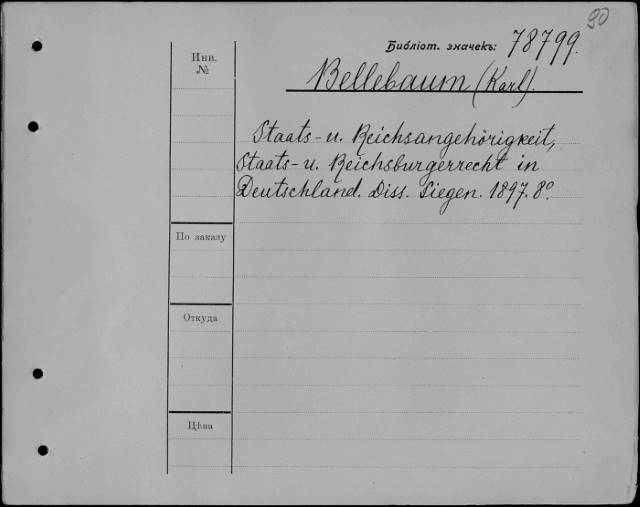 90
Библіот. значекъ: 78799.
Инв.
№
Bellebaum (Karl).
Staats- u. Reichsangehörigkeit,
Staats- u. Reichsburgerrecht in
Deutschland. Diss. Siegen. 1897. 8°.
По заказу
Откуда
Цѣна